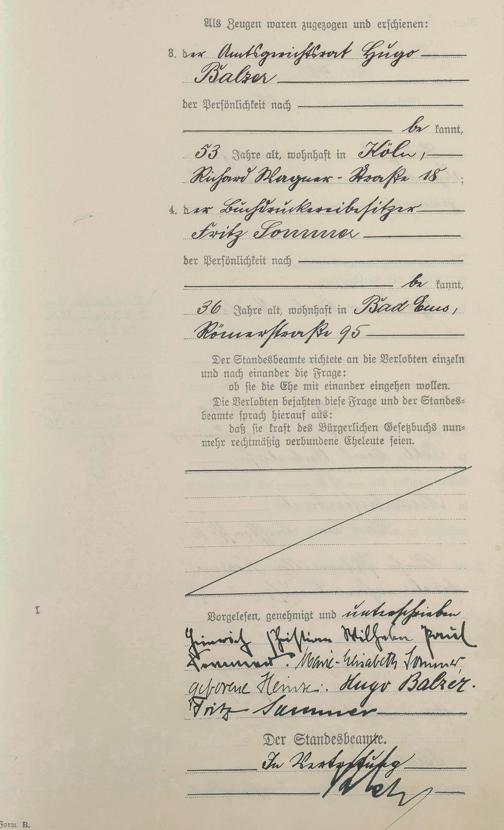 Als Zeugen waren zugezogen und erschienen:
3. der Amtsgerichtsrat Hugo
Balzer
der Persönlichkeit nach
be kannt,
53 Jahre alt, wohnhaft in Köln,
Richard Wagner-Straße 18;
4. der Buchdruckereibesitzer
Fritz Sommer
der Persönlichkeit nach
be kannt,
36 Jahre alt, wohnhaft in Bad Ems,
Römerstraße 95
Der Standesbeamte richtete an die Verlobten einzeln
und nach einander die Frage:
ob sie die Ehe mit einander eingehen wollen.
Die Verlobten bejahten diese Frage und der Standes-
beamte sprach hierauf aus:
daß sie kraft des Bürgerlichen Gesetzbuchs nun-
mehr rechtmäßig verbundene Eheleute seien.
Vorgelesen, genehmigt und unterschrieben
Heinrich Christian Wilhelm Paul
Sommer. Marie-Elisabeth Sommer
geborene Heinze. Hugo Balzer.
Fritz Sommer
Der Standesbeamte.
In Vertretung
Form. B.